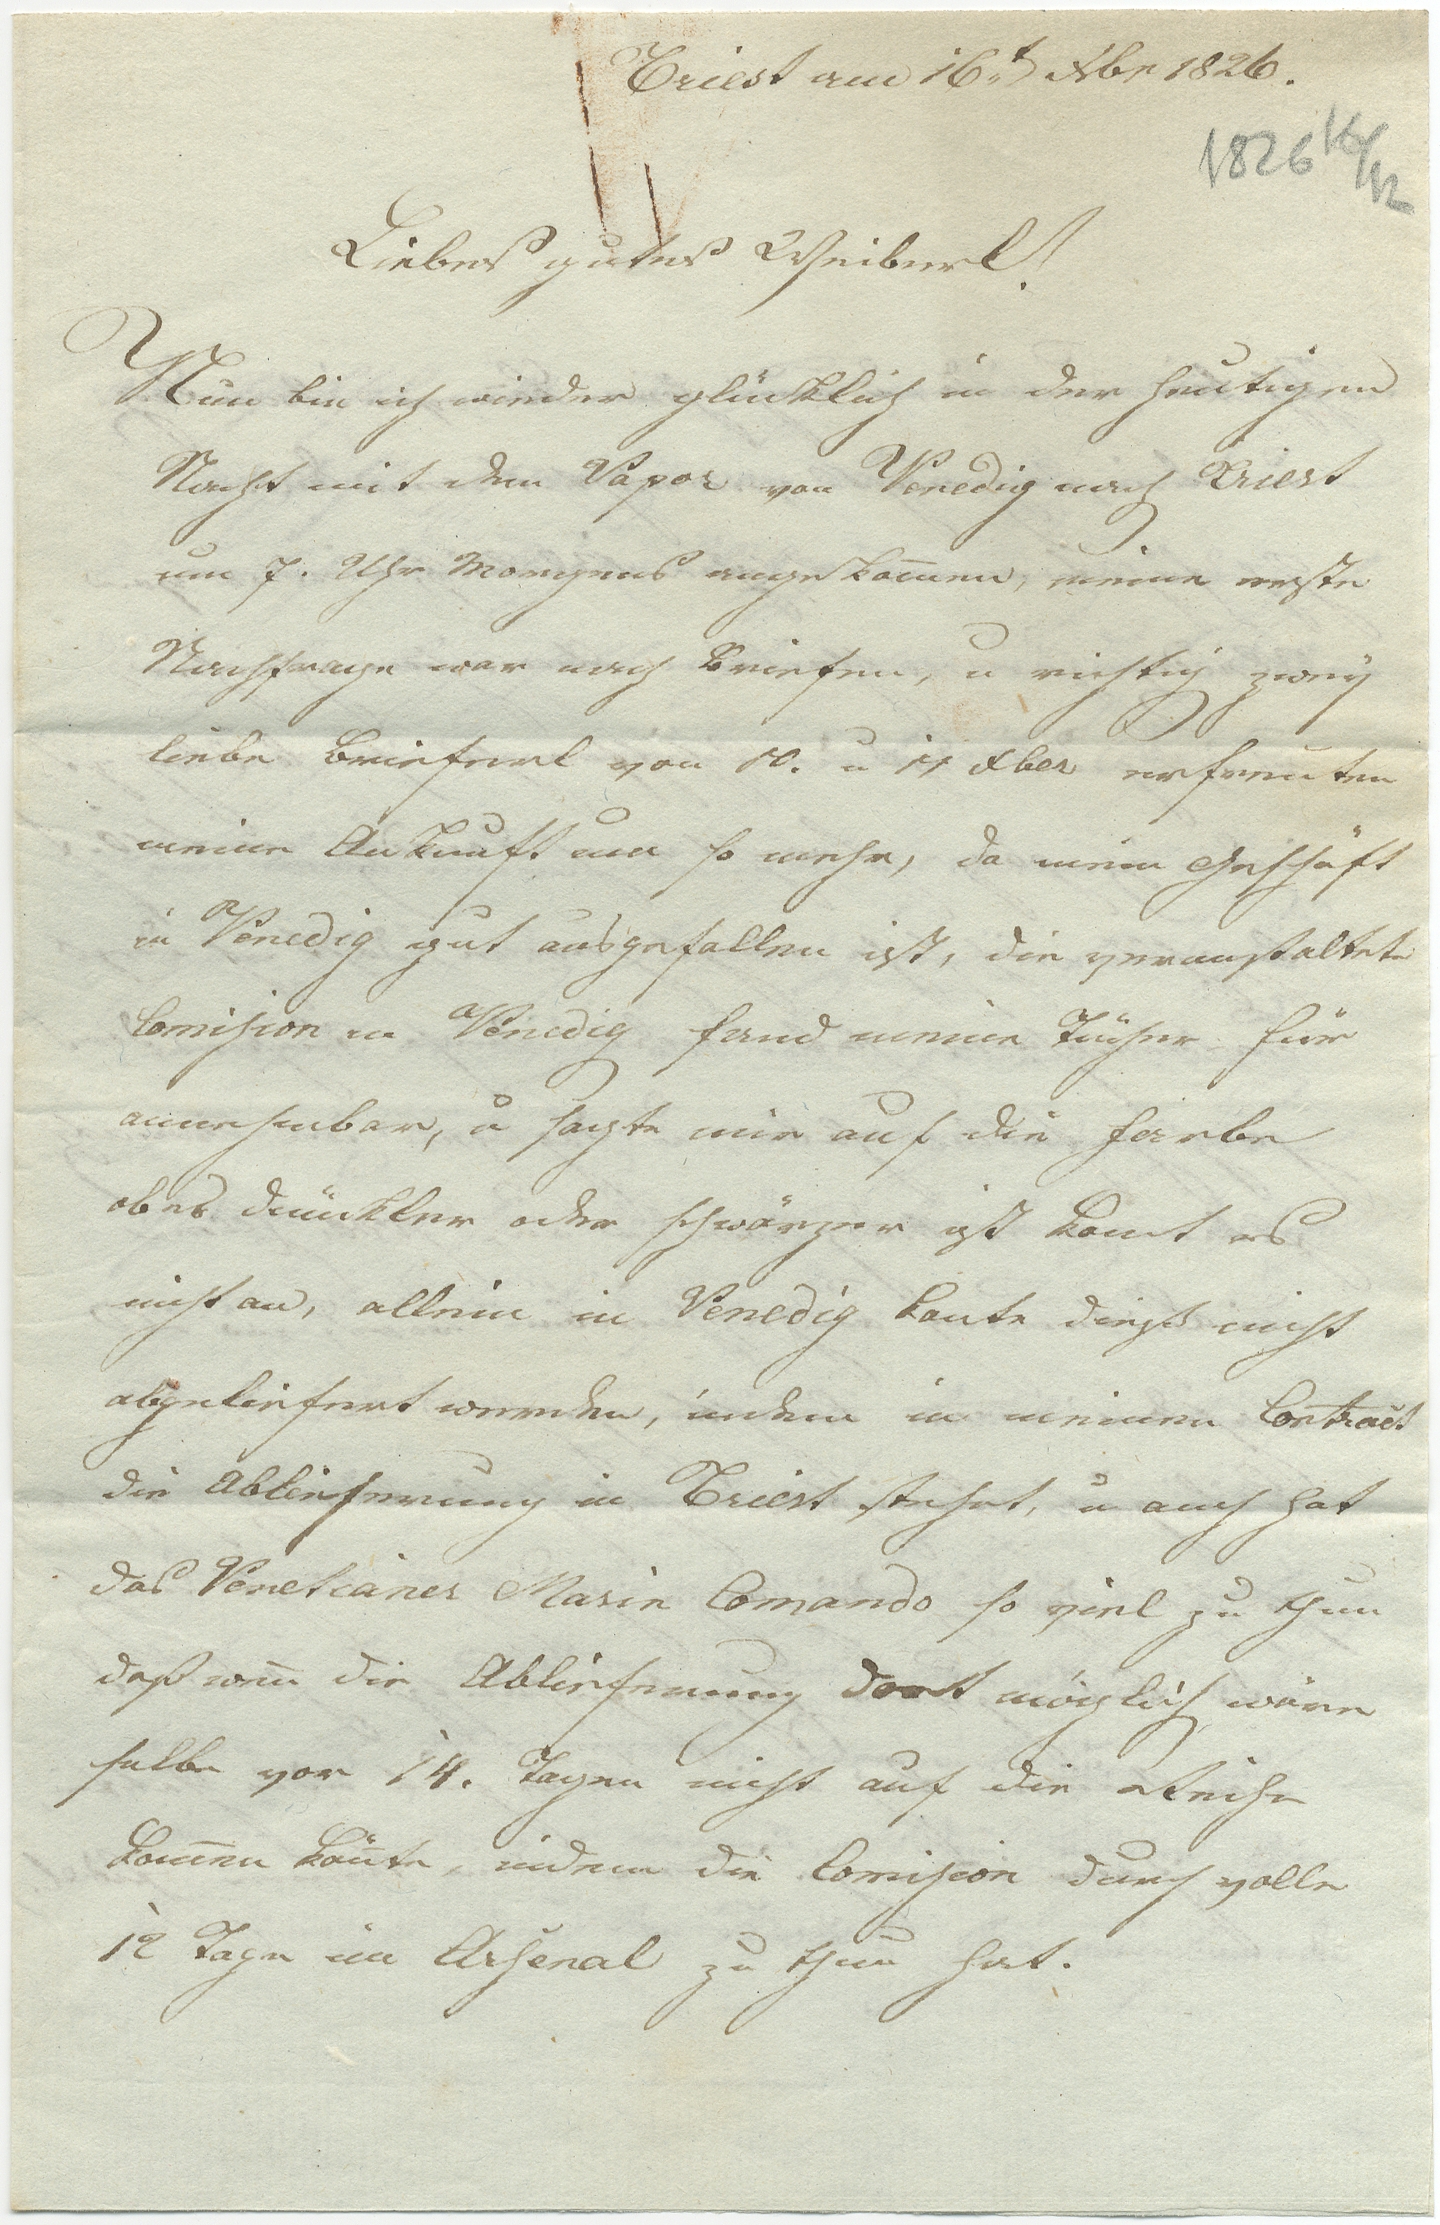 Triest am 16t Xbr 1826.
1826 16/12
Liebes gutes Weiberl!
Nun bin ich wieder glücklich in der heutigen
Nacht mit dem Vapor von Venedig nach Triest
um 7. Uhr Morgens angekom̄en, meine erste
Nachfrage war nach Briefen, u richtig zwey
liebe Brieferl von 10. u 11 Xber erfreuten
meine Ankunft um so mehr, da mein Geschäft
in Venedig gut ausgefallen ist, die veranstaltete
Comission in Venedig fand meine Tücher für
annehmbar, u sagte mir auf die Farbe
ob es dunkler oder schwärzer ist komt es
nicht an, allein in Venedig konte dieß nicht
abgeliefert werden, indem in meinen Contract
die Ablieferung in Triest stehet, u auch hat
das Venetianer Marin Comando so viel zu thun
daß wen̄ die Ablieferung dort möglich wäre
selbe vor 14. Tagen nicht auf die Reihe
kom̄en kön̄te, indem die Comission durch volle
12 Tage im Arsenal zu thun hat.